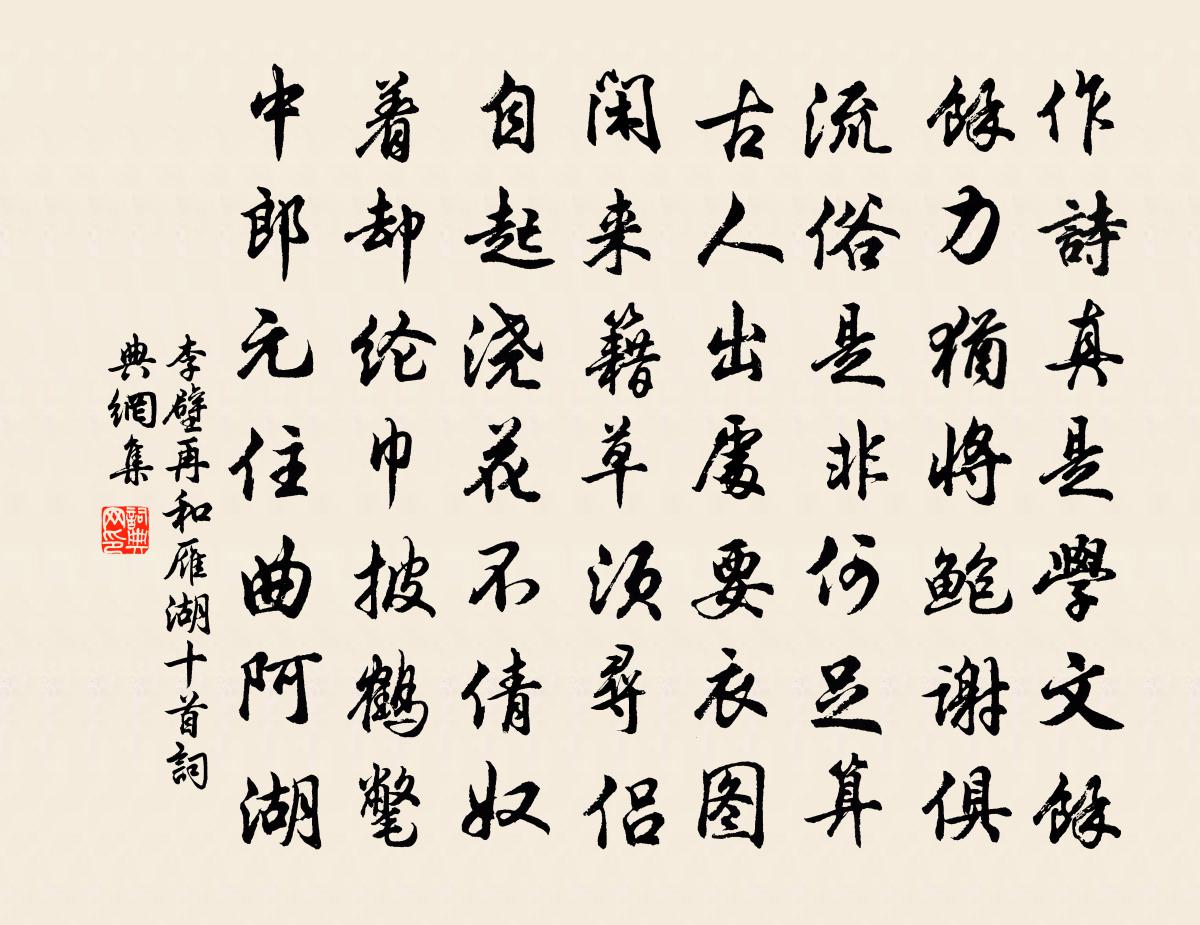 作詩真是學文餘
餘力猶將鮑謝俱
流俗是非何足算
古人出處要衣图
閑来籍草須尋侣
自起浇花不倩奴
着却纶巾披鹤氅
中郎元住曲阿湖
李壁再和雁湖十首詞
典網集
詞典
网印